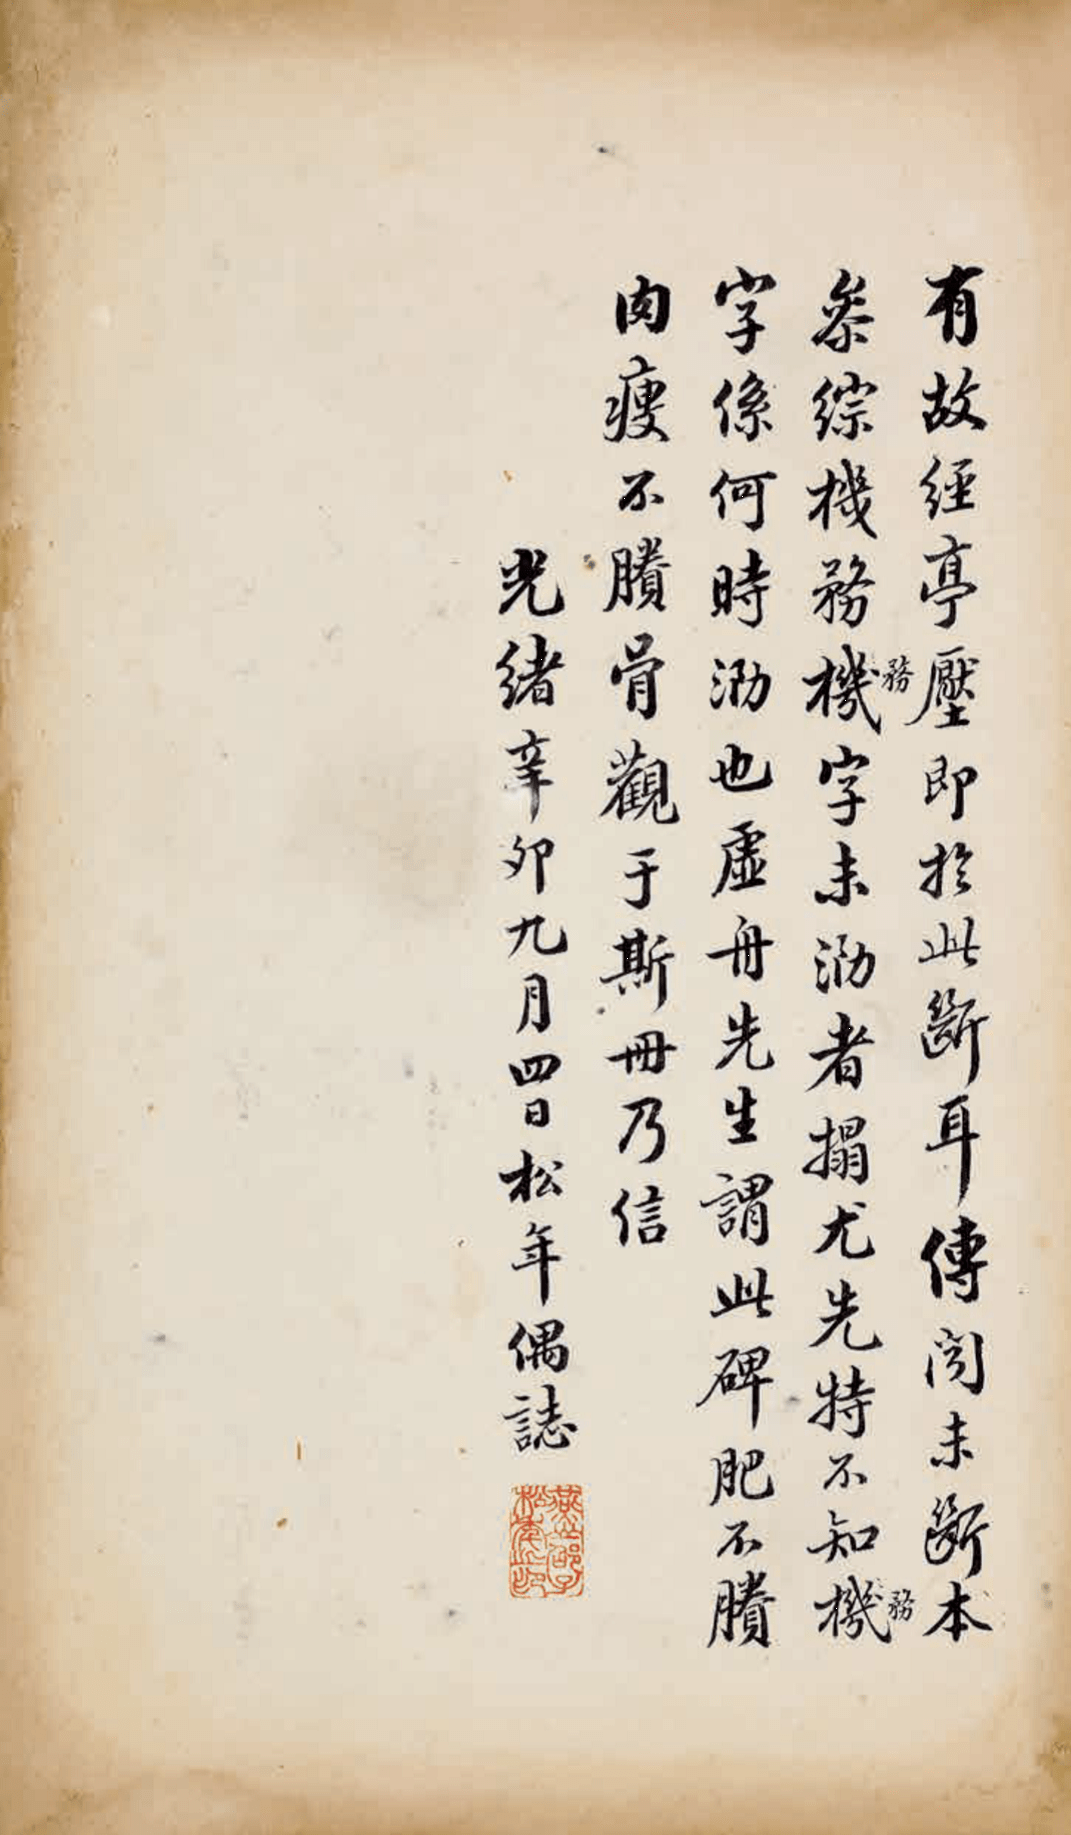 有故經亭壓即於此斷耳傳聞未斷本
叅綜機務機務字未泐者搨尤先特不知機務
字係何時泐也虛舟先生謂此碑肥不賸
肉瘦不賸骨觀于斯冊乃信
光緒辛卯九月四日松年偶誌